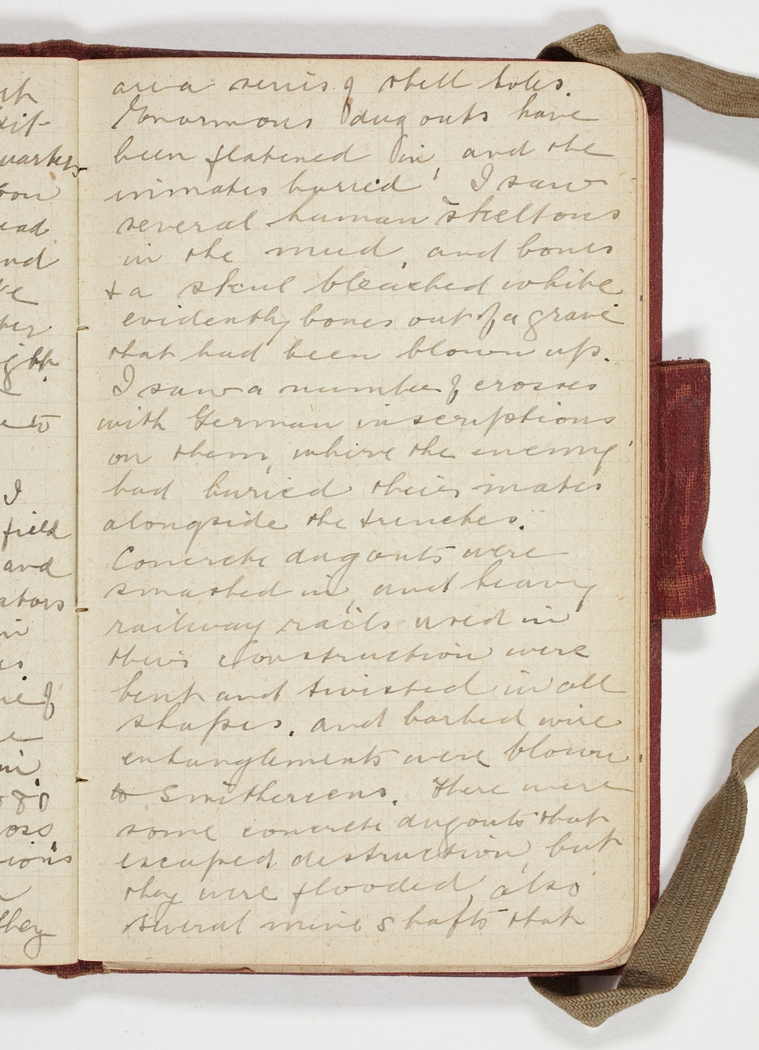 area series of shell holes.
Enormous dugouts have
been flatened in, and the
inmates burried! I saw
several human skeltons
in the mud, and bones
& a skul bleached white
evidently bones out of a grave
that had been blown up.
I saw a number of crosses
with German inscriptions
on them, where the enemy
had buried their mates
alongside the trenches.
Concrete dugouts were
smashed in, and heavy
railway rails used in
their construction were
bent and twisted in all
shapes, and barbed wire
entanglements were blown
to smithereens. There were
some concrete dugouts that
escaped destruction, but
they were flooded, also
several mine shafts that
field
and
they